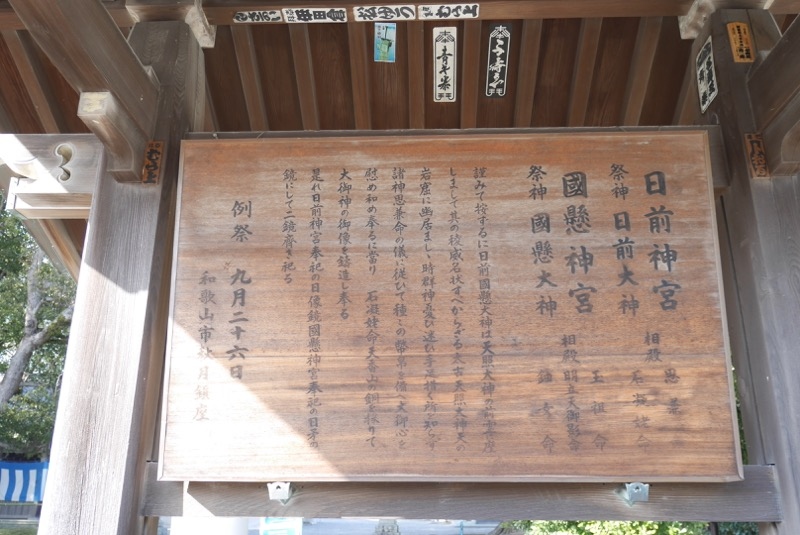 日前神宮 相殿 思兼命 石凝姥命
祭神 日前大神
國懸神宮 相殿 玉祖命 明立天御影命 鈿女命
祭神 國懸大神
謹みて按するに日前國懸大神は天照大神の前霊に座
しまして其の稜威名状すべからざる太古天照大神天の
岩窟に幽居ましし時群神憂ひ迷ひ手足措く所を知らず
諸神思兼命の議に従ひて種々の幣帛を備へ大御心を
慰め和め奉るに當り 石凝姥命天香山の銅を採りて
大御神の御像を鋳造し奉る
是れ日前神宮奉祀の日像鏡國懸神宮奉祀の日矛の
鏡にして二鏡齊き祀る
例祭 九月二十六日
和歌山市秋月鎮座